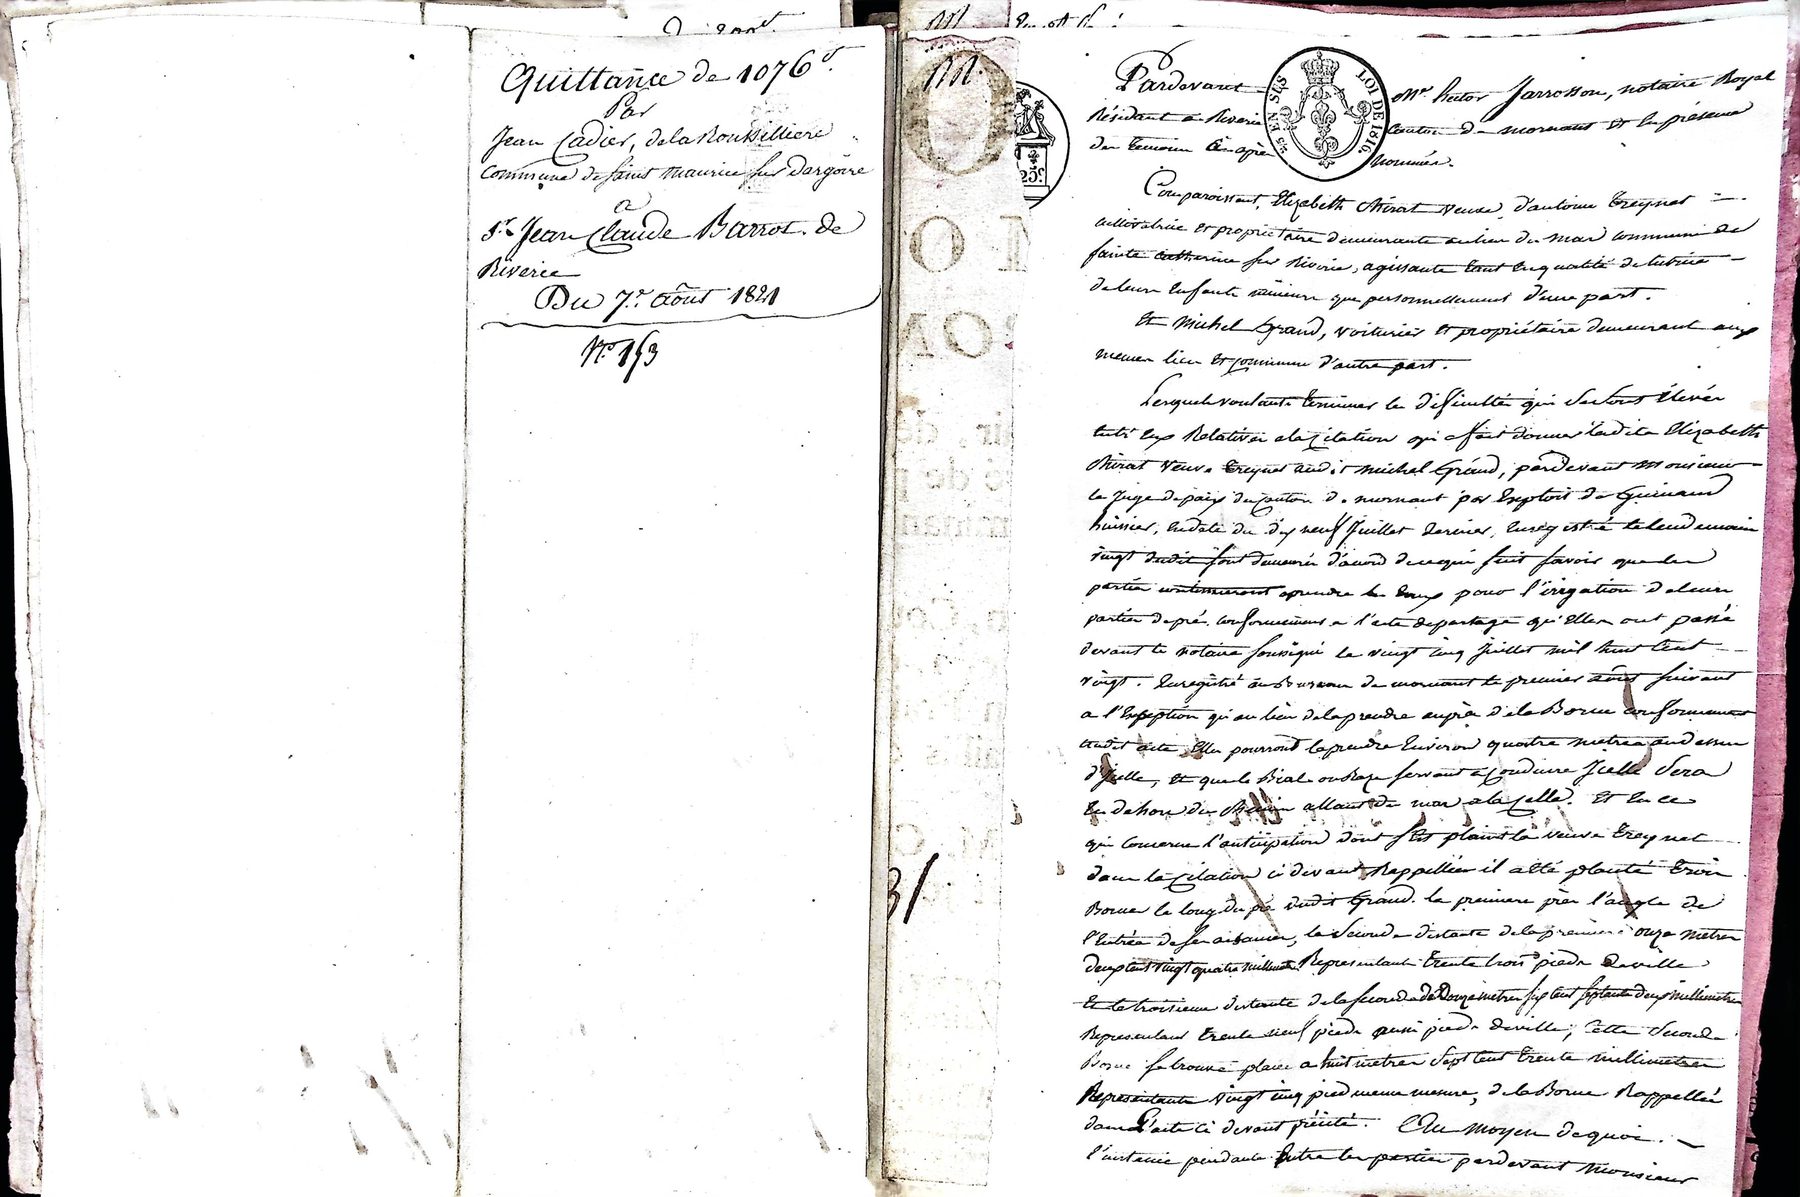 Quittance de 1076 f.
Par
Jean Cadier, de la Roussilliere
Commune de saint maurice sur dargoire
a
Sr. Jean Claude Barrot. de
Riverie
Du 7.e août 1821
N.o 153
M.
25c
31
EN SUS LOI DE 1816.
Pardevant Me. hector Jarrosson, notaire Royal
Résidant a Riverie canton de mornant et en présence
des temoins ci après nommés.
Comparoissent, Elizabeth veuve d'antoine Treynet
cultivatrice et propriétaire demeurante au lieu du mas commune de
sainte catherine sur Riverie, agissante tant en qualité de tutrice
de leurs enfants mineurs que personnellement d'une part.
Et michel Grand, voiturier et propriétaire demeurant aux
memes lieu et commune d'autre part.
Lesquels voulants terminer les difficultés qui se sont élevées
entr'eux Relatives a la citation qu'a fait donner ladite Elizabeth
veuve Treynet audit michel Grand, pardevant monsieur
le juge de paix du canton de mornant par exploit de
huissier, en date du dix neuf juillet dernier, enregistré le lendemain
vingt dudit sont demeurés d'accord de ce qui suit savoir que les
parties continueront a prendre les eaux pour l'irrigation de leurs
parties de pré, conformément a l'acte de partage qu'elles ont passé
devant le notaire soussigné le vingt cinq juillet mil huit cent
vingt. Enregistré au Bureau de mornant le premier août suivant
a l'exception qu'au lieu de la prendre auprès de la Borne conformément
audit acte, elles pourront la prendre environ quatre metres au dessus
d'icelle, et que le Bial ou Raze servant a conduire icelle sera
en dehors du chemin allant du mas a la celle. Et en ce
qui concerne l'anticipation dont s'est plainte la veuve Treynet
dans la citation ci devant Rappellée il a été planté trois
Bornes le long du pré dudit Grand. la premiere près l'angle de
l'entrée de ses aisances, la seconde distante de la premiere onze metres
deux cent vingt quatre millimetres Representants trente trois pieds de ville
et la troisieme distante de la seconde de Douze metres six cent septante deux millimetres
Representant trente neuf pieds aussi pieds de ville, cette seconde
Borne se trouve placée a huit metres sept cent trente millimetres
Representants vingt cinq pieds meme mesure, de la Borne Rappellée
dans l'acte ci devant précité. Au moyen de quoi
l'instance pendante entre les parties pardevant Monsieur